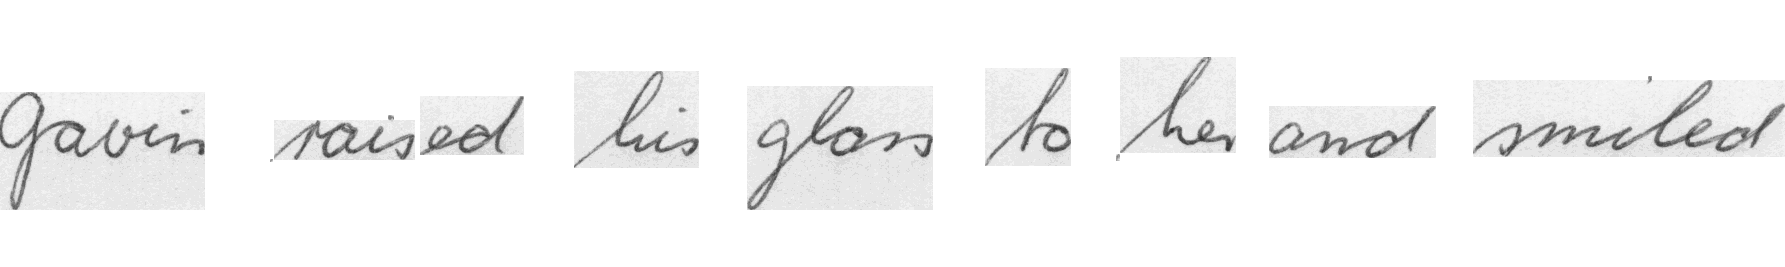 Gavin raised his glass to her and smiled